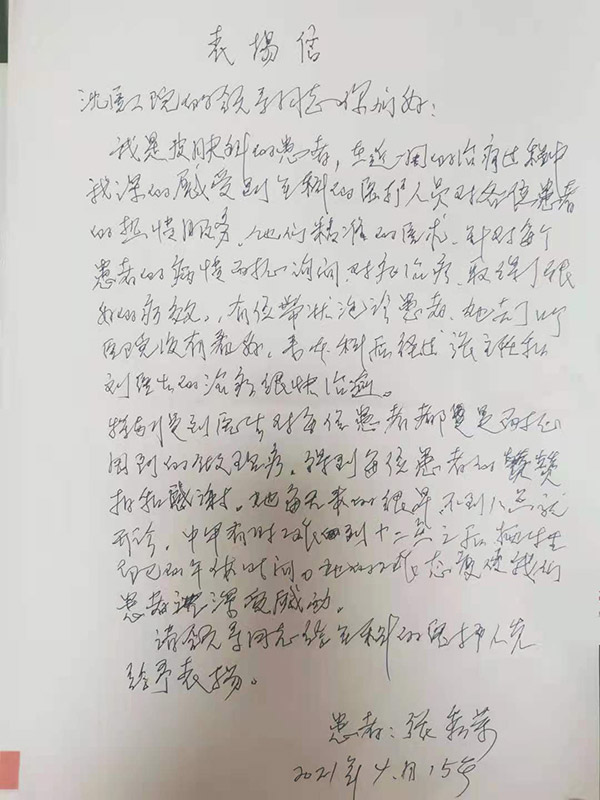 表扬信
沈医二院的领导同志你们好：
我是皮肤科的患者，在近一周的治疗过程中
我深的感受到全科的医护人员对各位患者
的热情服务，他们精准的医术，针对每个
患者的病情耐心询问，对症治疗，取得了很
好的疗效，有位带状泡诊患者，她去了四个
医院没有看好，来本科后经过张主任和
刘医生的治疗很快治愈。
特别是刘医生对每位患者都是耐心
周到的做理疗，得到每位患者的赞赞
扬和感谢。她每天来的很早，不到八点就
开诊，中午有时工作到十二点之后牺牲
自己的午休时间。她的工作态度使我们
患者深受感动。
请领导同志给全科的医护人员
给予表扬。
患者：张 荣
2021年4月15号